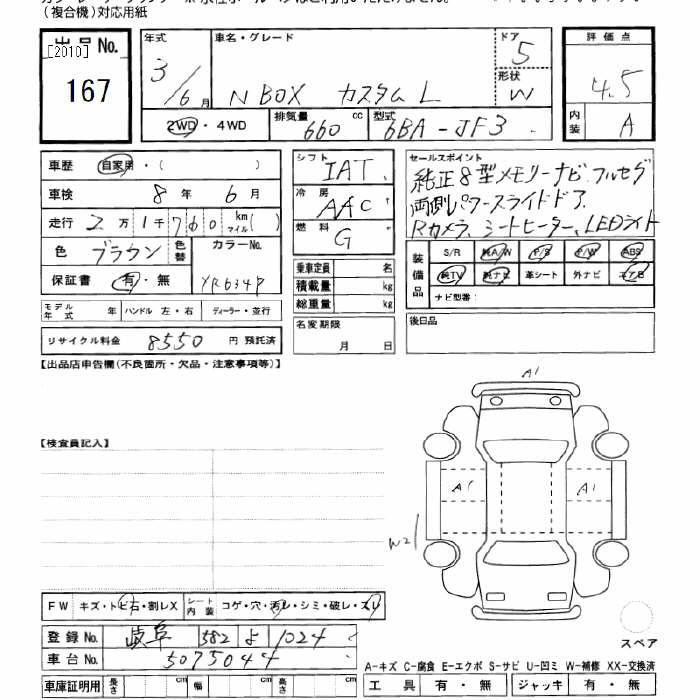 (複合機)対応用紙
出品 No.
[2010]
167
年式
3/6 月
車名・グレード
N BOX カスタム L
ドア
5
形状
W
評価点
4.5
内装
A
2WD・4WD
排気量
660 cc
型式
6BA-JF3
車歴 自家用・( )
車検 8 年 6 月
走行 2 万 1 千 760 km マイル( )
色 ブラウン 色替 カラーNo.
保証書 有・無 YR634P
モデル年式 年 ハンドル 左・右 ディーラー・並行
リサイクル料金 8550 円 預託済
シフト IAT
冷房 AAC
燃料 G
乗車定員 名
積載量 kg
総重量 kg
名変期限
月 日
セールスポイント
純正8型メモリーナビ、フルセグ
両側パワースライドドア
Rカメラ、シートヒーター、LEDライト
装備品
S/R 純A/W P/S P/W ABS
純TV 純ナビ 革シート 外ナビ エアB
ナビ型番:
後日品
【出品店申告欄(不良箇所・欠品・注意事項等)】
【検査員記入】
A1
A1
A1
W2
FW キズ・トビ石・割レX シート内装 コゲ・穴・汚レ・シミ・破レ・スレ
登録 No. 岐阜 582 よ 1024
車台 No. 5075044
車庫証明用 長さ cm 幅 cm 高さ cm
スペア
A-キズ C-腐食 E-エクボ S-サビ U-凹ミ W-補修 XX-交換済
工具 有・無 ジャッキ 有・無